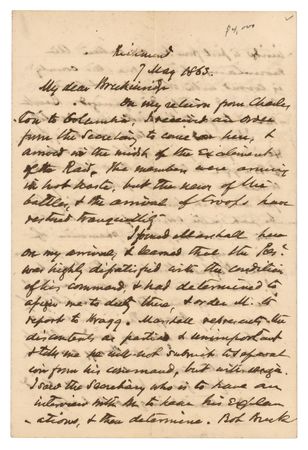 $4,000
Richmond
7 May 1863.
My dear Breckinridge
On my return from Charles
ton to Columbia, I received an order
from the Secretary to come on here, &
arrived in the midst of the excitement
of the Raid. The members were arming
in hot haste, but the news of the
battles, & the arrival of troops have
restored tranquility
I found Marshall here
on my arrival, & learned that the Pres.t
was highly dissatisfied with the condition
of his command, & had determined to
assign me to duty there, & order M. to
report to Bragg. Marshall represents the
discontents as partial & unimportant
& tells me he will not submit to separat
ion from his command, but will resign.
I saw the Secretary who is to have an
interview with M. to hear his explan
ations, & then determine. Bob Breck